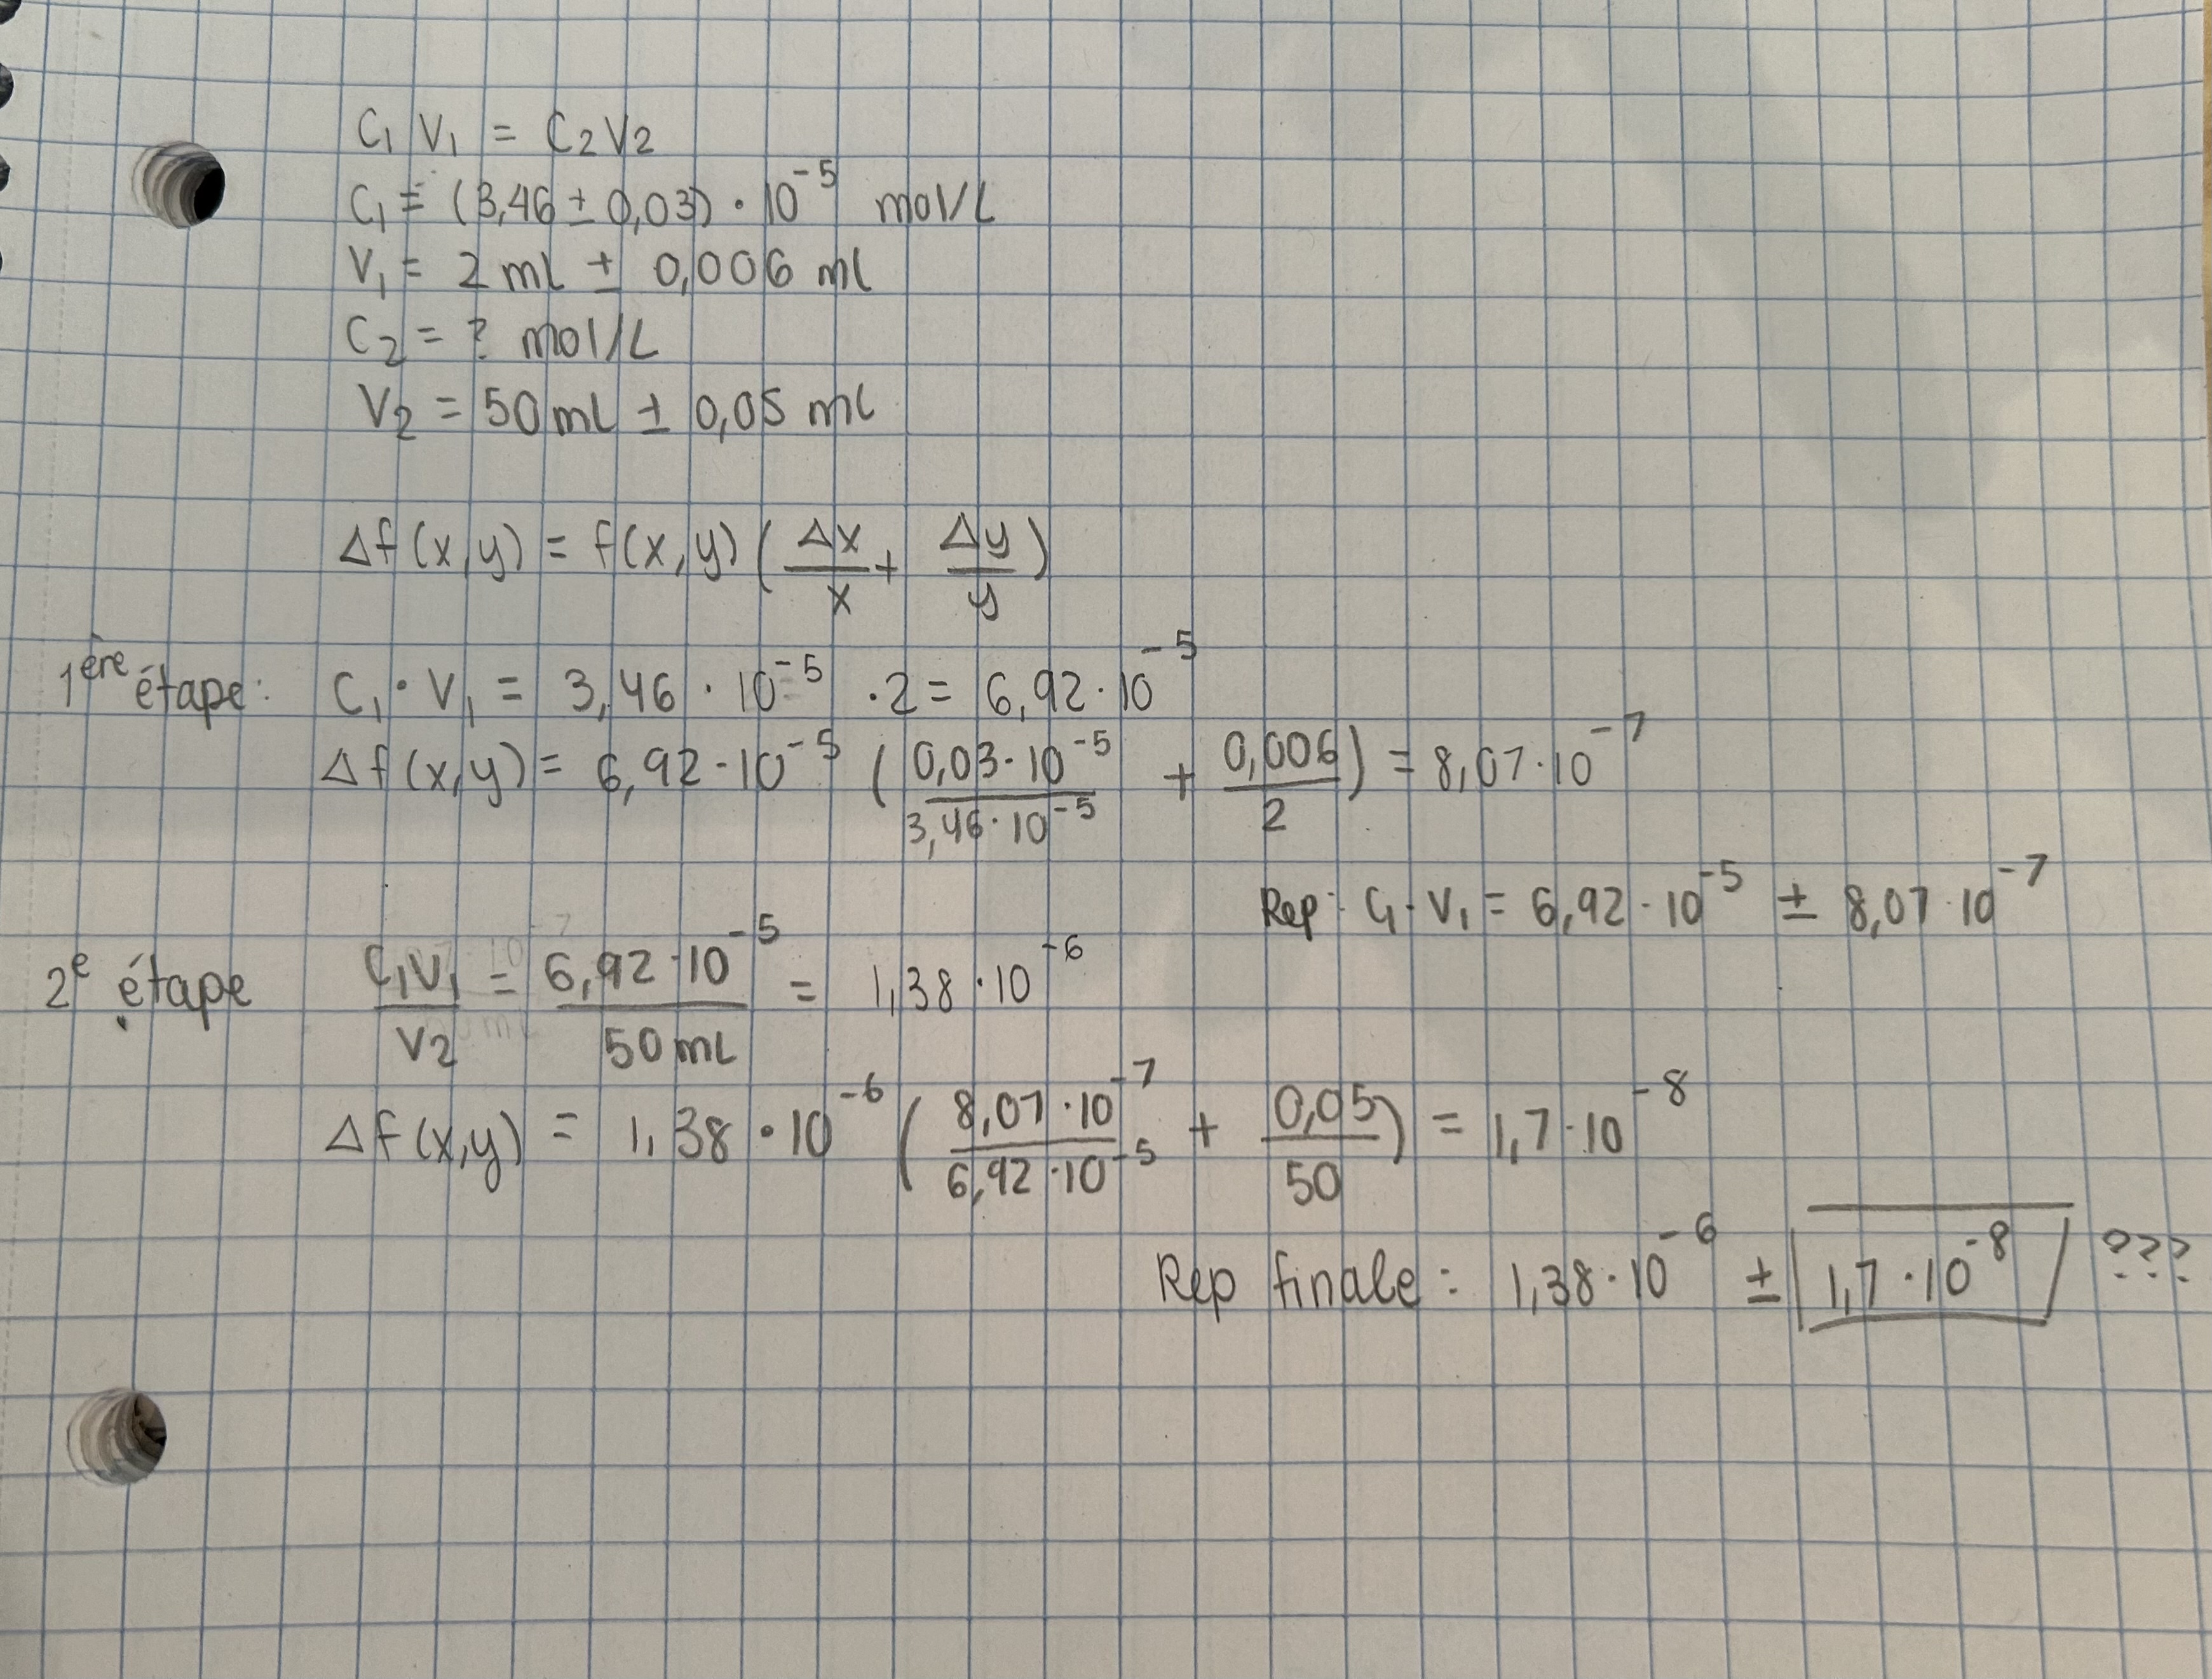 C₁ V₁ = C₂V₂
C₁ = (3,46 ± 0,03) · 10⁻⁵ mol/L
V₁ = 2 ml ± 0,006 ml
C₂ = ? mol/L
V₂ = 50 ml ± 0,05 ml
Δf(x,y) = f(x,y) (Δx/x + Δy/y)
1ère étape: C₁ · V₁ = 3,46 · 10⁻⁵ · 2 = 6,92 · 10⁻⁵
Δf(x,y) = 6,92 · 10⁻⁵ (0,03 · 10⁻⁵/3,46 · 10⁻⁵ + 0,006/2) = 8,07 · 10⁻⁷
Rep : C₁ · V₁ = 6,92 · 10⁻⁵ ± 8,07 · 10⁻⁷
2e étape C₁V₁/V₂ = 6,92 · 10⁻⁵/50 mL = 1,38 · 10⁻⁶
Δf(x,y) = 1,38 · 10⁻⁶ (8,07 · 10⁻⁷/6,92 · 10⁻⁵ + 0,05/50) = 1,7 · 10⁻⁸
Rep finale : 1,38 · 10⁻⁶ ± 1,7 · 10⁻⁸ ???